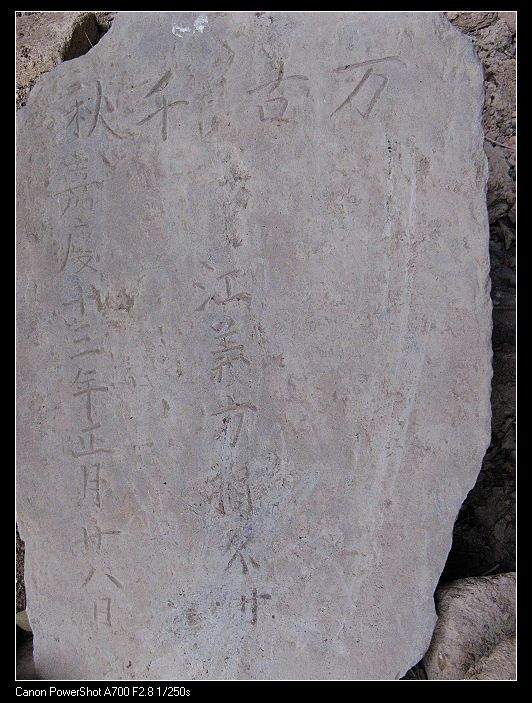 万古千秋
江義方
嘉慶十三年正月廿八日
Canon PowerShot A700 F2.8 1/250s